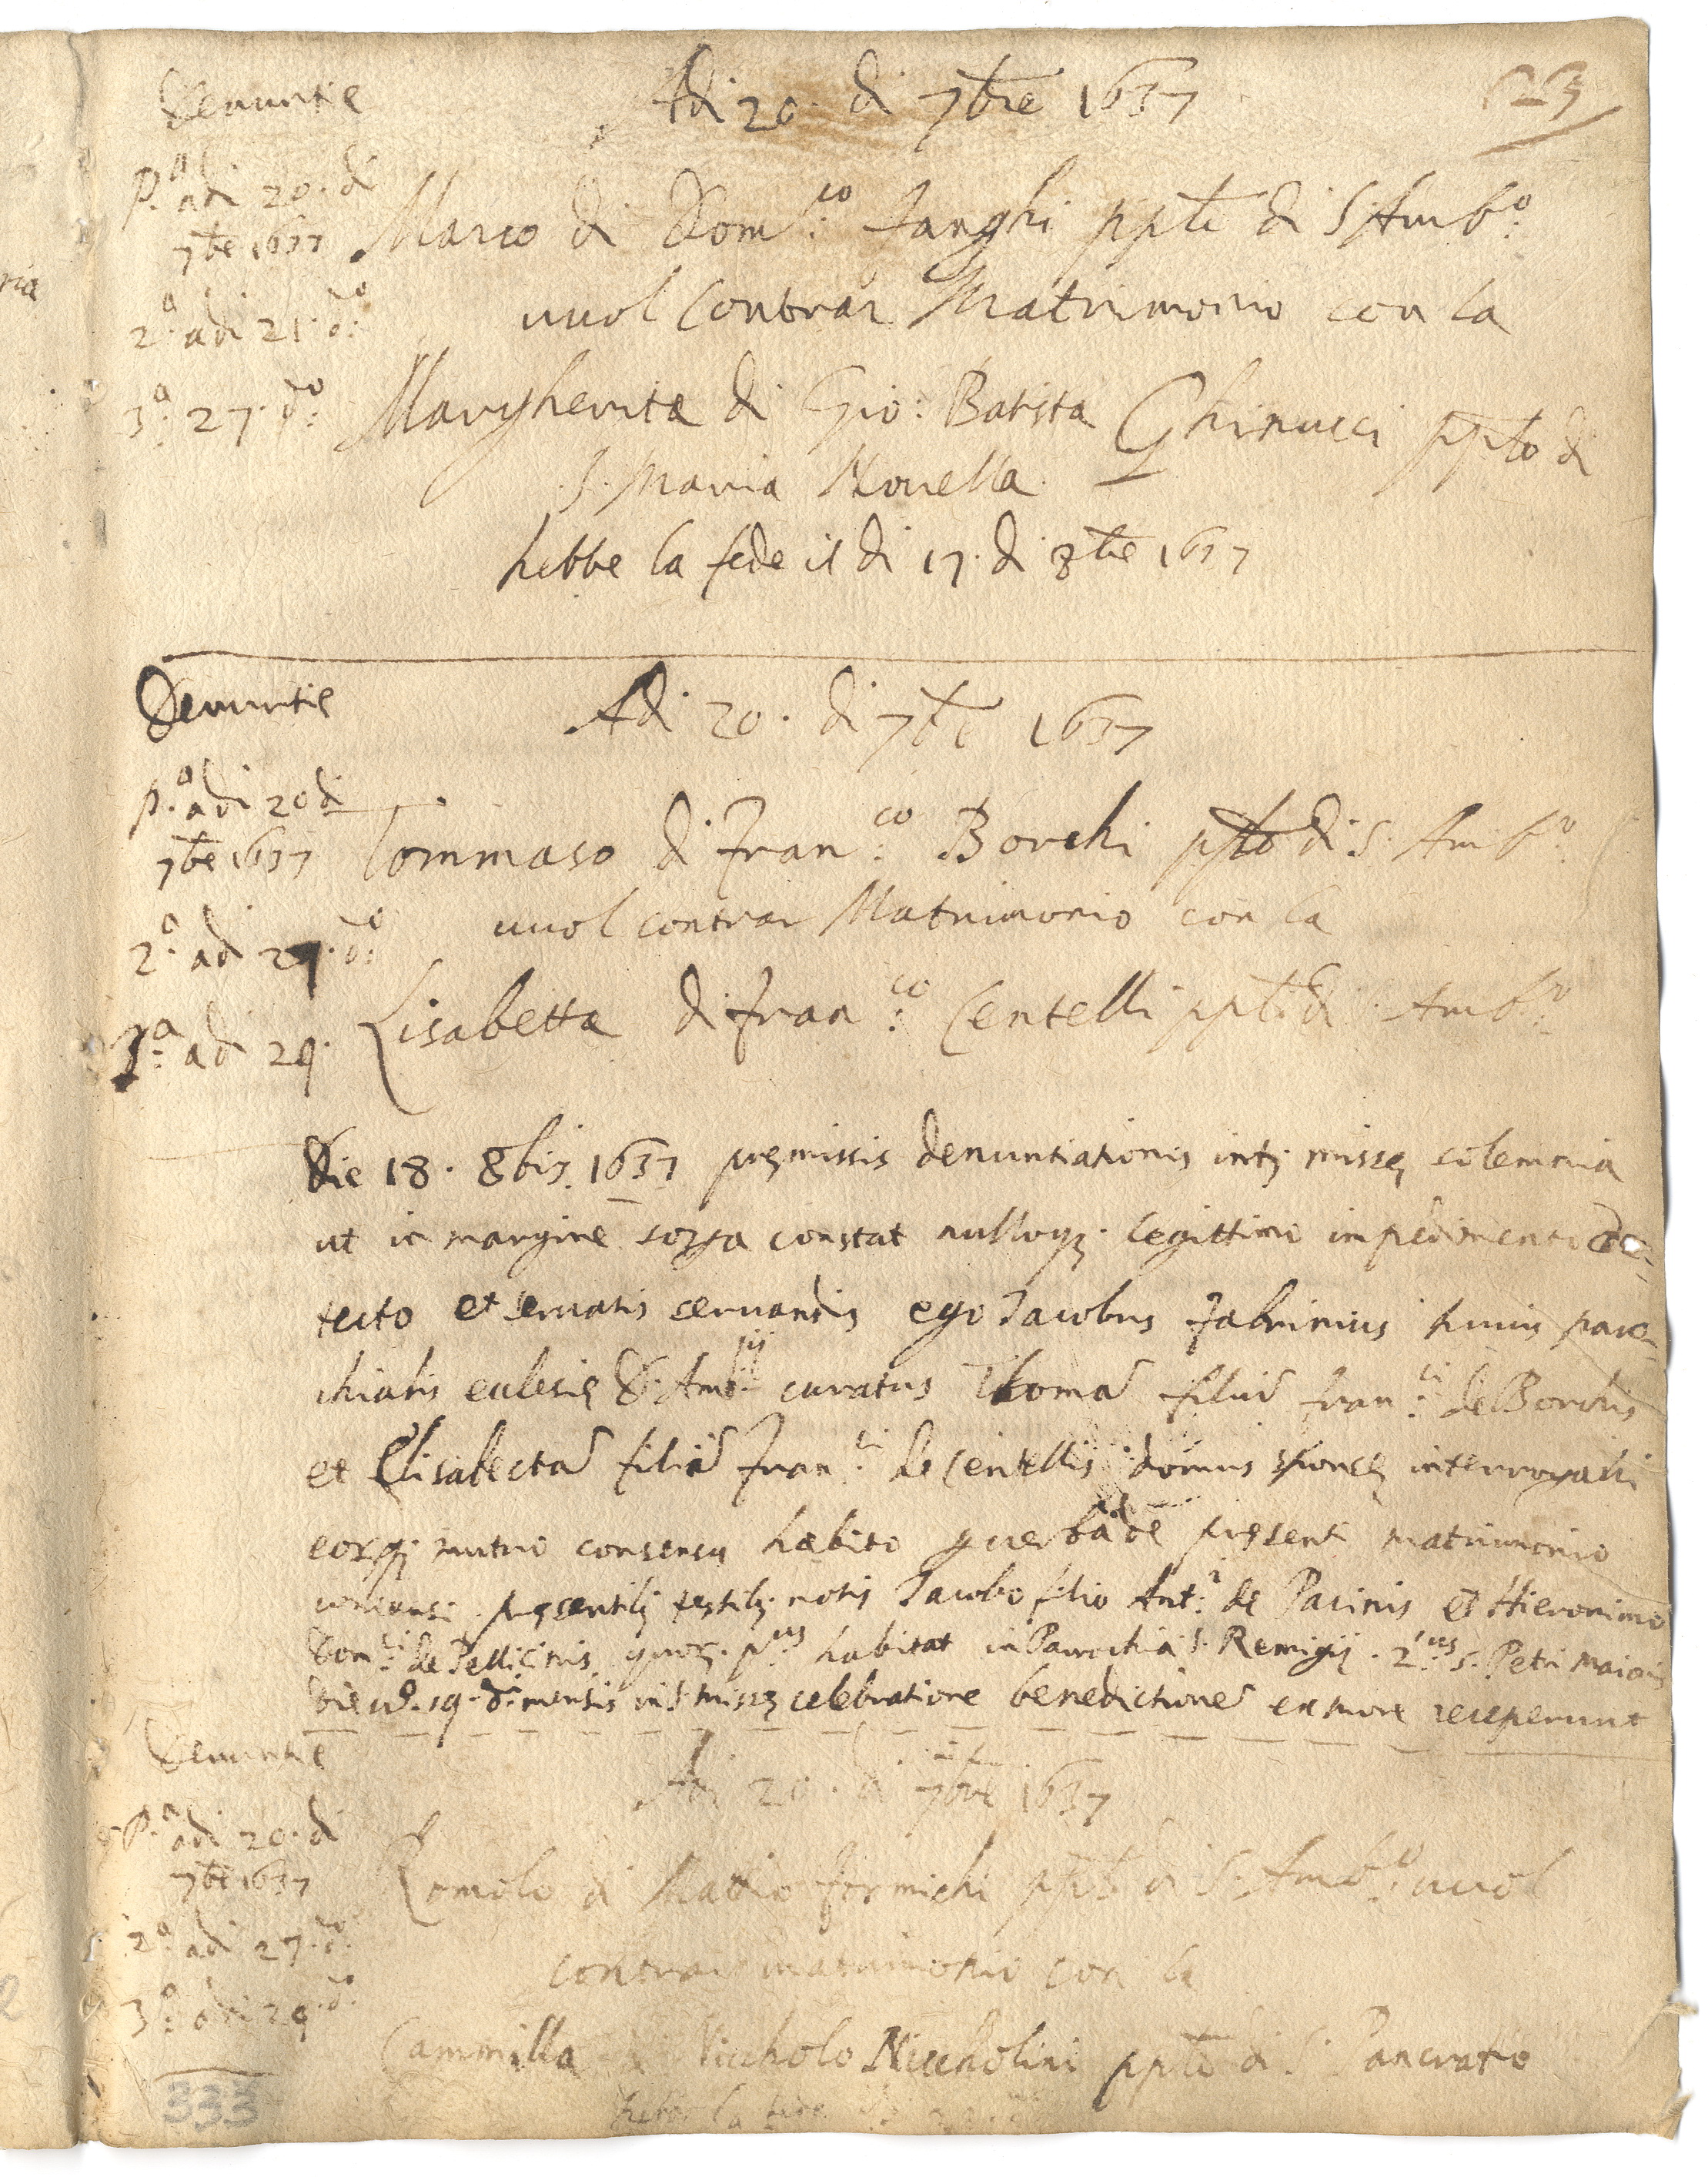 Denuntie
Adi 20. di 7bre 1637
623
P.a adi 20. di
7bre 1637
Marco di Dom.co Fanghi ppto di S Amb.o
2.a adi 21. do:
vuol Contrar Matrimonio con la
3.a 27. do:
Margherita di Gio: Batista Ghinucci ppto di
S. Maria Novella
hebbe la fede il di 17. di 8bre 1637
Denuntie
Adi 20. di 7bre 1637
p.a adi 20 di
7bre 1637
Tommaso di Fran.co Borchi ppto di S. Amb.o
2.a adi 27. do:
vuol contrar Matrimonio con la
3.a adi 29.
Lisabetta di Fran.co Centelli ppto di S. Amb.o
Die 18. 8bis. 1637 premissis denuntiationis int; misse solemnia
ut in margine sopra constat nulloq; legittimo impedimento de-
tecto et servatis servandis ego Jacobus Fabrinius huius paro-
chialis eclesie S. Amb.ij curatus Thoma filiu Fran.ci de Borchis
et Elisabecta filia Fran.ci de Centellis domus sponse interrogavi
eorq; mutuo consensu habito p verba de presenti matrimonio
coniunsi presentib; testib; notis Jacobo filio Ant.i de Pacinis et Hieronimo
Dom.ci de Pellicinis quor. p.us habitat in Parochia S. Remigij. 2.us S. Petri Maioris
die v.o 19. d.i mensis in S. misse celebratione benedictione ex more receperunt
Denuntie
Adi 20. di 7bre 1637
P.a adi 20. di
7bre 1637
Romolo di Matteo Formichi ppto di S. Amb.o vuol
2.a adi 27. do:
contrar matrimonio con la
3.a adi 29 do:
Cammilla di Niccholo Niccholini ppto di S. Pancratio
333
hebbe la fede